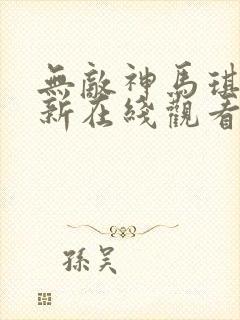 無敵神馬琪
新在綫觀看
孫吴